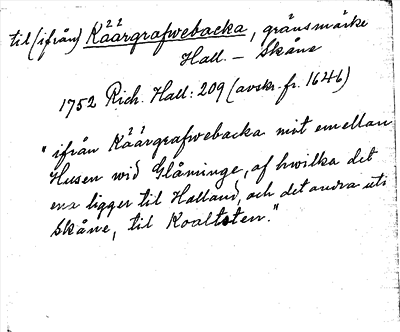 til (ifrån) Kåärgrafwebacka, gränsmärke
Hall. – Skåne
1752 Rich. Hall: 209 (avskr. fr. 1646)
"ifrån Kåärgrafwebacka mit emellan
Husen wid Glåminge, af hwilka det
ena ligger til Halland, och det andra uti
Skåne, til Koaltsten."